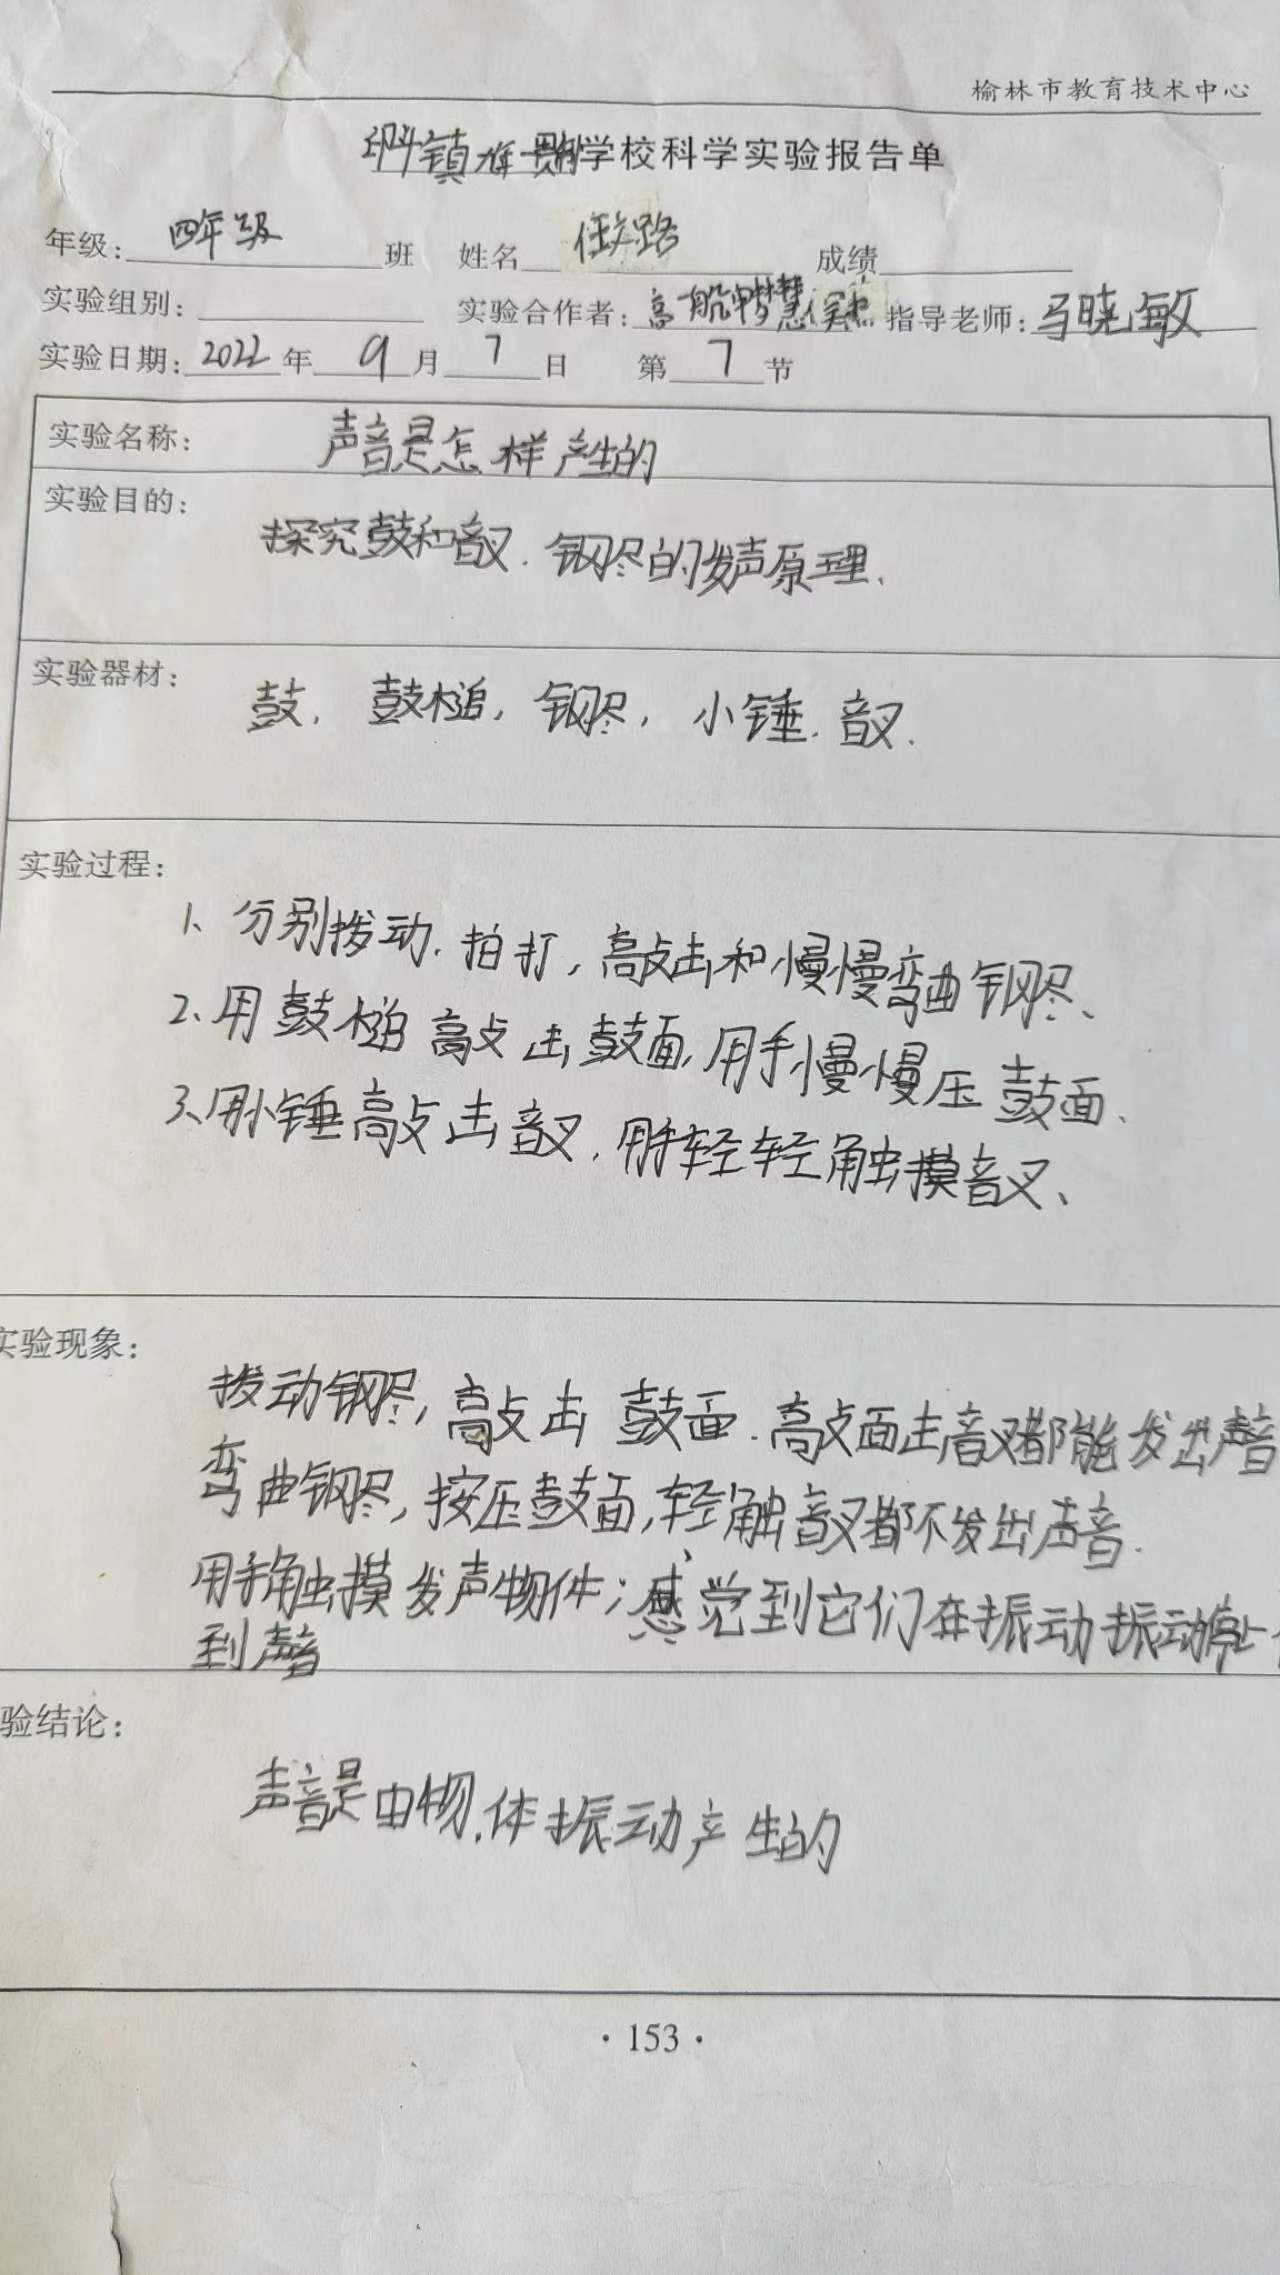 榆林市教育技术中心
镇 学校科学实验报告单
年级: 四年级 班 姓名 任 路 成绩
实验组别: 实验合作者: 高 慧 指导老师: 马晓敏
实验日期: 2022 年 9 月 7 日 第 7 节
实验名称: 声音是怎样产生的
实验目的:
探究鼓和音叉. 钢尺的发声原理、
实验器材:
鼓, 鼓槌, 钢尺, 小锤. 音叉.
实验过程:
1、分别拨动. 拍打, 敲击和慢慢弯曲钢尺、
2、用鼓槌敲击鼓面, 用手慢慢压鼓面.
3、用小锤敲击音叉, 用手轻轻触摸音叉、
实验现象:
拨动钢尺, 敲击鼓面. 敲面击音叉都能发出声音
弯曲钢尺, 按压鼓面, 轻触音叉都不发出声音.
用手触摸发声物件; 感觉到它们在振动 振动停止
到声音
验结论:
声音是由物体振动产生的
·153·